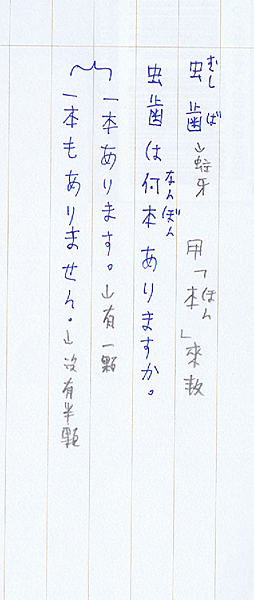 虫歯→蛀牙 用「本」來數
むし ば ほん
虫歯は何本ありますか。
なんぼん
一本あります。→有一顆
一本もありません。→沒有半顆